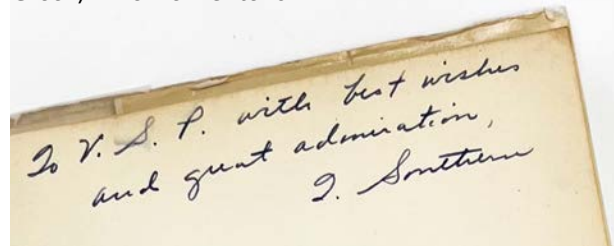 To V. S. P. with best wishes
and great admiration,
T. Southern